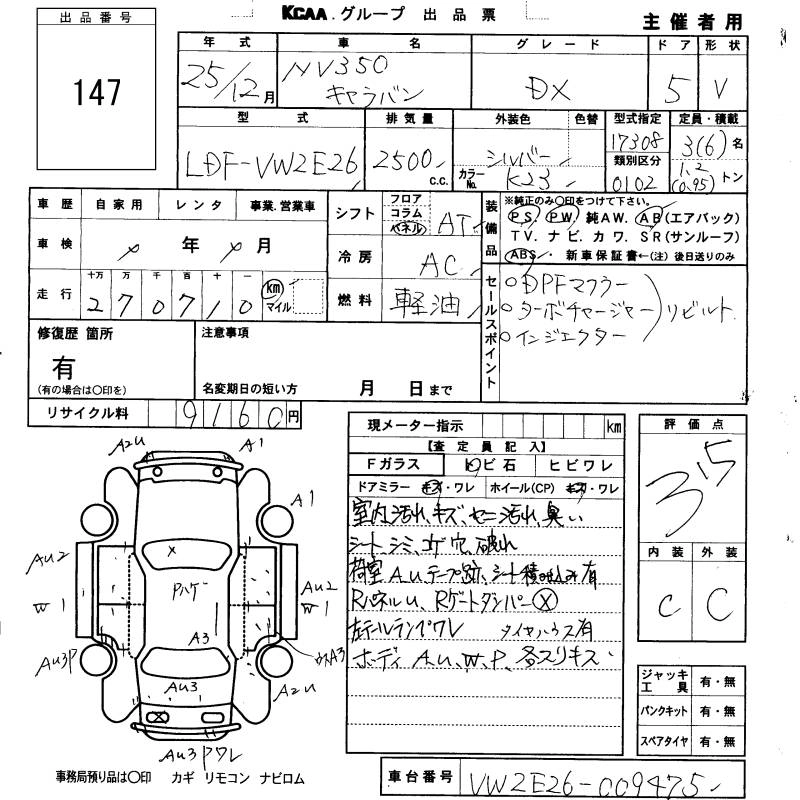 KCAA.グループ 出品票
主催者用
出品番号
147
年式 車名 グレード ドア 形状
25/12月 NV350 キャラバン DX 5 V
型式 排気量 外装色 色替 型式指定 定員・積載
LDF-VW2E26 2500 c.c. シルバー 17308 3(6)名
カラーNo. K23 類別区分 0102 1.2 (0.95)トン
車歴 自家用 レンタ 事業.営業車
シフト フロア コラム パネル AT
装備品 ※純正のみ○印をつけて下さい。
PS. PW. 純AW. AB(エアバック)
TV. ナビ. カワ. SR(サンルーフ)
ABS. 新車保証書←(注)後日送りのみ
車検 年 月
冷房 AC
走行 十万 万 千 百 十 一
270710 km マイル
燃料 軽油
セールスポイント
○DPFマフラー
○ターボチャージャー リビルト
○インジェクター
修復歴 箇所
有
(有の場合は○印を)
注意事項
名変期日の短い方 月 日まで
リサイクル料 9160円
現メーター指示 km
【査定員記入】
Fガラス トビ石 ヒビワレ
ドアミラー キズ・ワレ ホイール(CP) キズ・ワレ
室内汚れ、キズ、モニ汚れ、臭い
シート、シミ、コゲ穴、破れ
荷室 AU、テープ跡、シート積み込み有
RパネルU、RゲートダンパーX
左テールランプワレ タイヤハウス有
ボディ A.U.W.P. 各スリキズ
評価点
3.5
内装 外装
C C
A2U A1
A1
AU2
W1
AU3P
X
Pハゲ
A3
AU3
X
AU2
W1
A3
A2U
AU3Pワレ
ジャッキ 工具 有・無
パンクキット 有・無
スペアタイヤ 有・無
事務局預り品は○印 カギ リモコン ナビロム
車台番号 VW2E26-009475